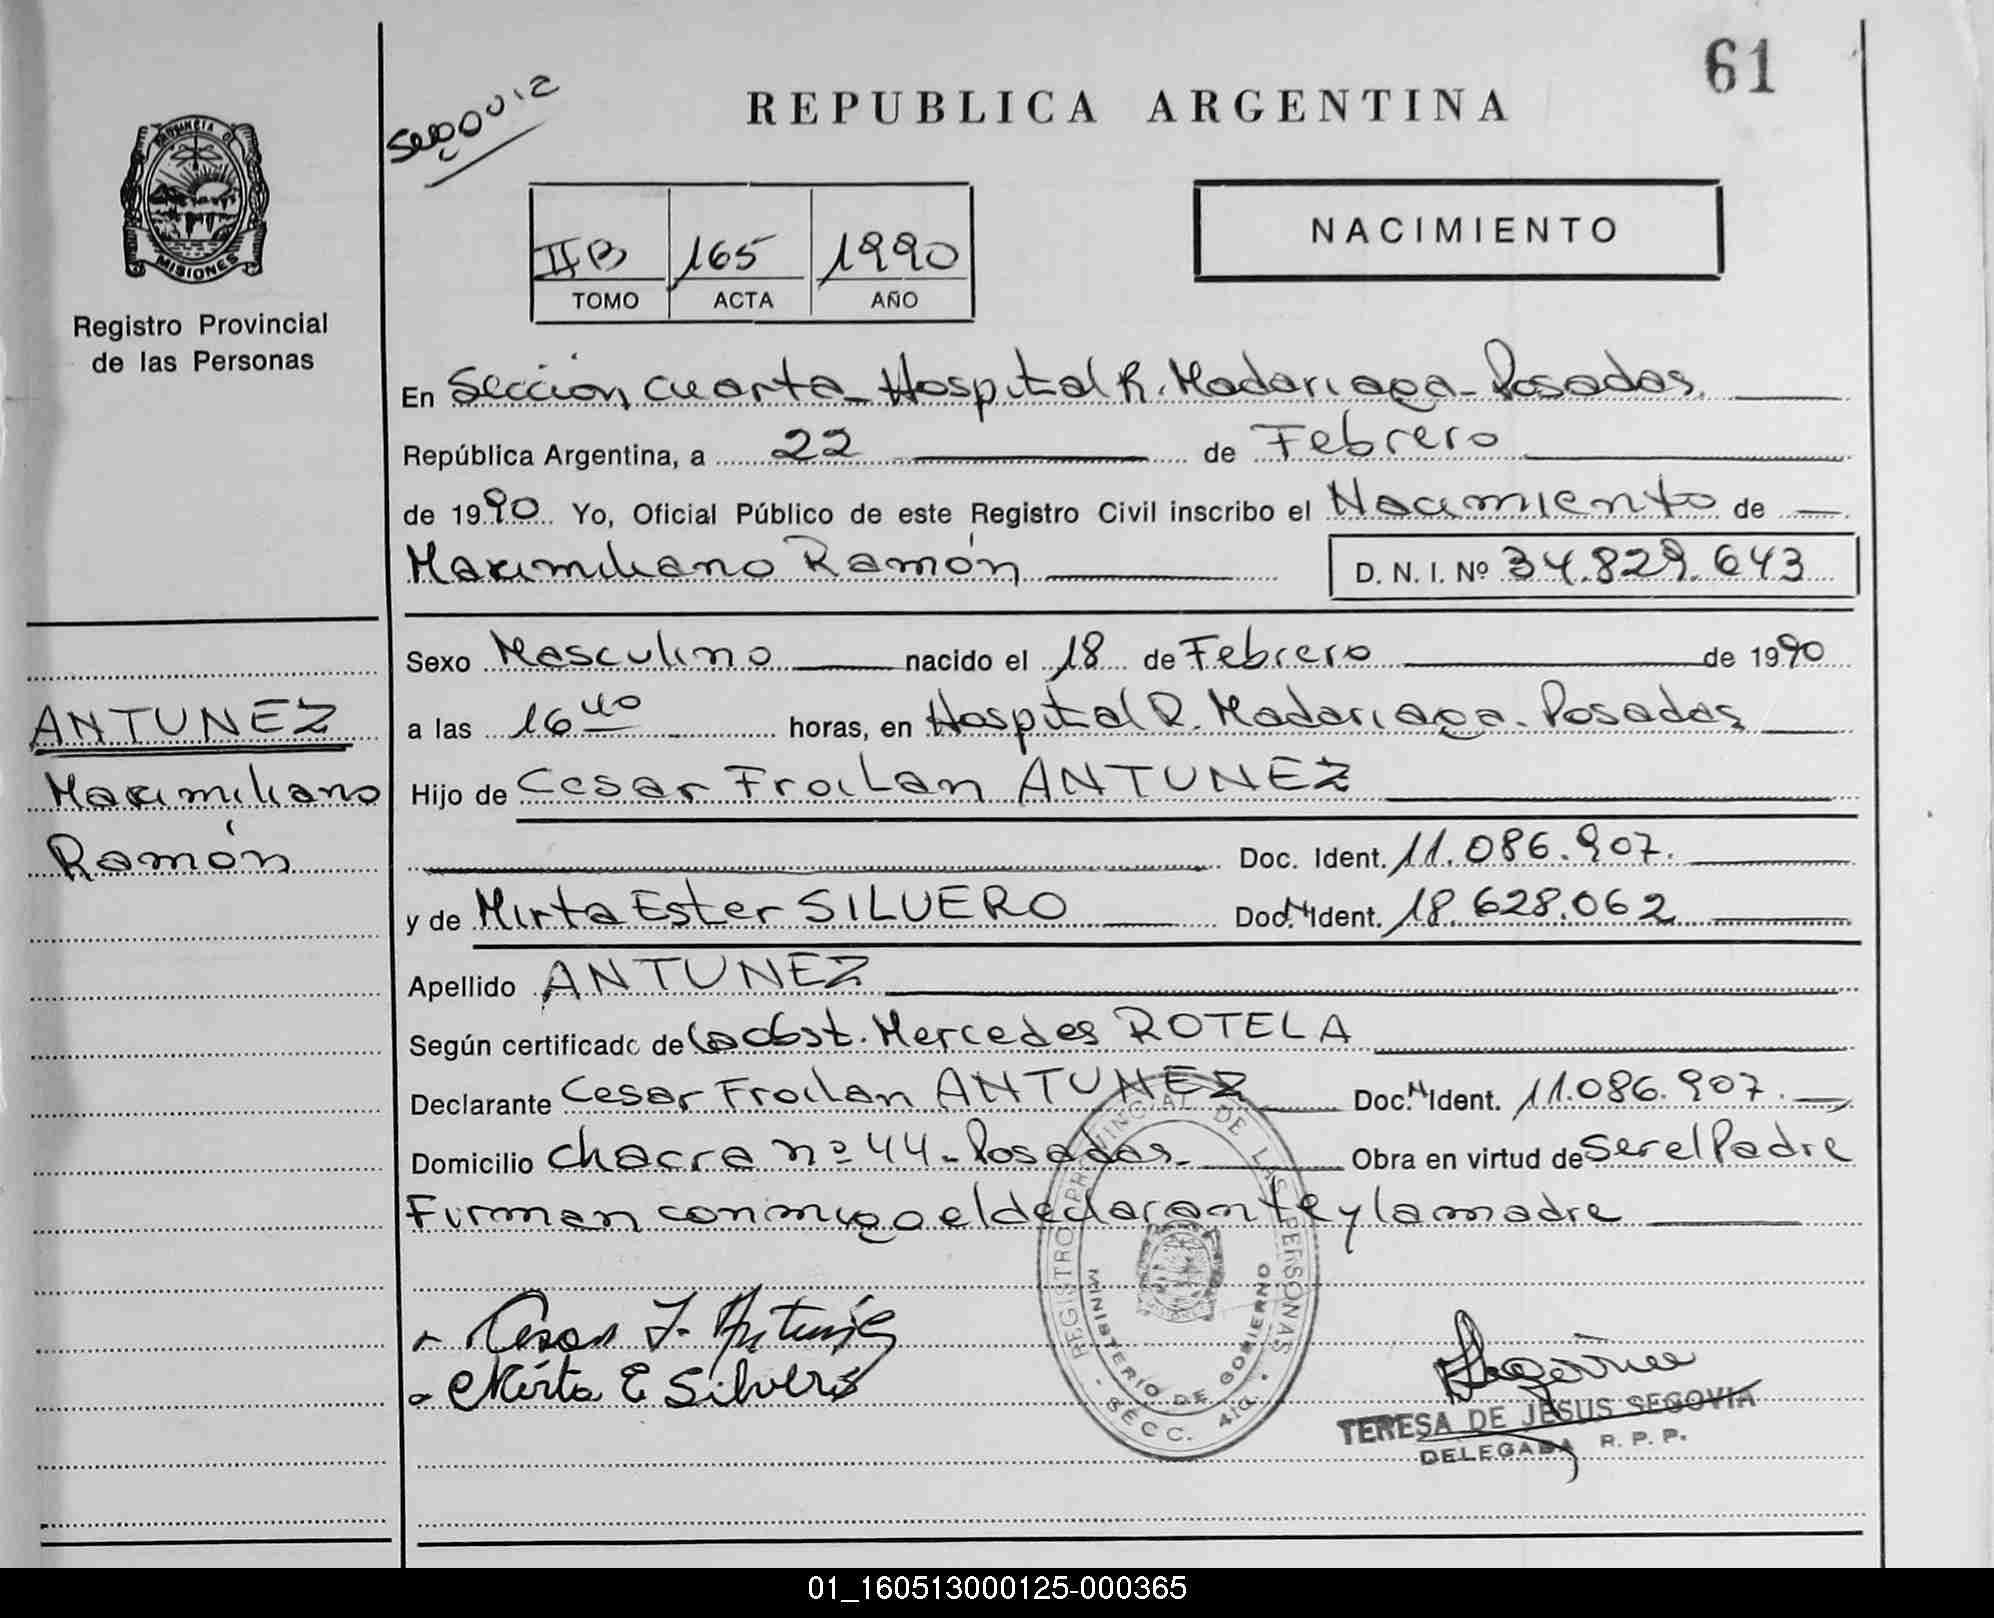 61
REPUBLICA ARGENTINA
PROVINCIA DE
MISIONES
Registro Provincial
de las Personas
NACIMIENTO
IIB 165 1990
TOMO ACTA AÑO
En Sección cuarta - Hospital R. Madariaga - Posadas.
República Argentina, a 22 de Febrero
de 1990 Yo, Oficial Público de este Registro Civil inscribo el Nacimiento de
Maximiliano Ramón D. N. I. Nº 34.829.643
Sexo Masculino nacido el 18 de Febrero de 1990
a las 16 40 horas, en Hospital R. Madariaga - Posadas
Hijo de Cesar Froilan ANTUNEZ
Doc. Ident. 11.086.907.
y de Mirta Ester SILVERO Doc. N Ident. 18.628.062
Apellido ANTUNEZ
Según certificado de la obst. Mercedes ROTELA
Declarante Cesar Froilan ANTUNEZ Doc. N Ident. 11.086.907.
Domicilio chacra nº 44 - Posadas - Obra en virtud de ser el Padre
Firman conmigo el declarante y la madre
ANTUNEZ
Maximiliano
Ramón
Cesar F. Antunez
Mirta E Silvero
REGISTRO PROVINCIAL DE LAS PERSONAS
MINISTERIO DE GOBIERNO
- SECC. 4ta. -
TERESA DE JESUS SEGOVIA
DELEGADA R. P. P.
01_160513000125-000365